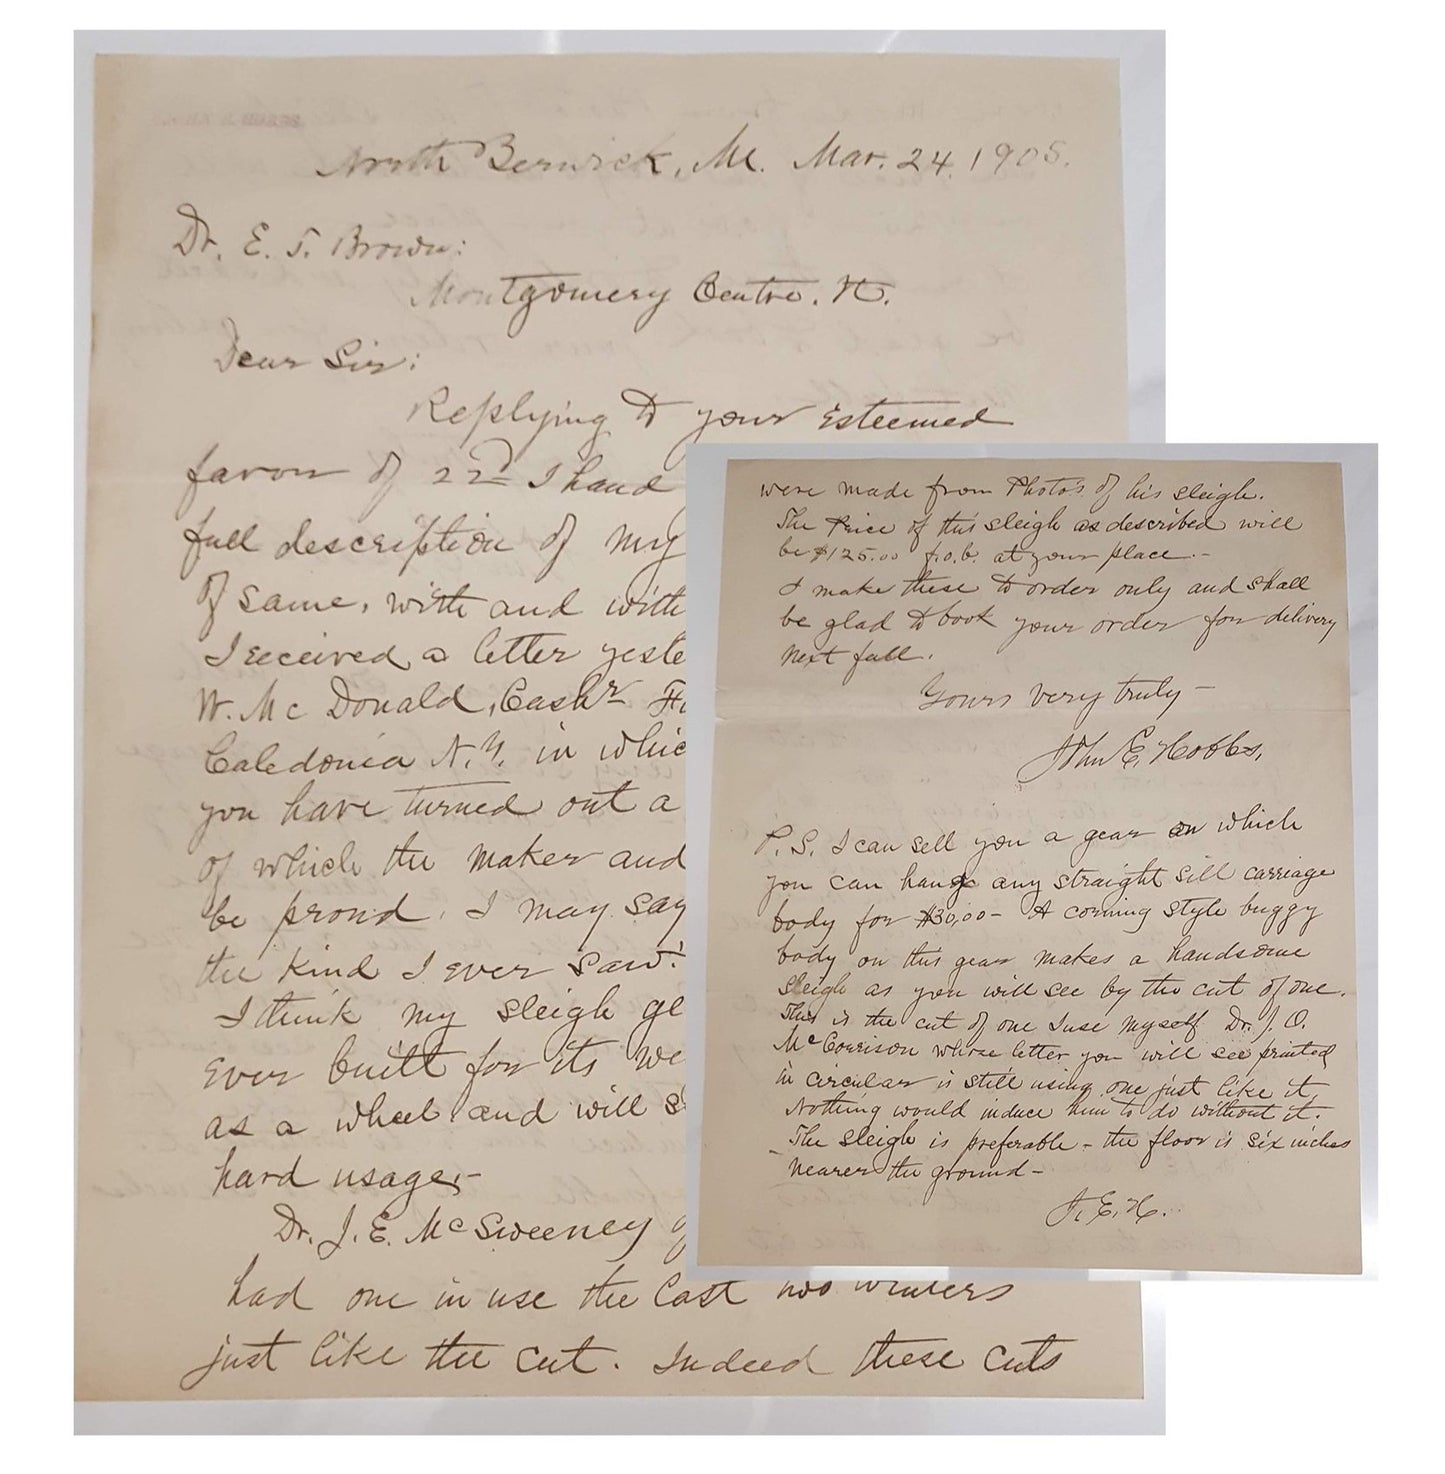 North Berwick, Me. Mar. 24, 1905.
Dr. E. T. Brown:
Montgomery Centre. Vt.
Dear Sir:
Replying to your esteemed
favor of 22nd I hand
full description of my
of same, with and with
I received a letter yeste
W. Mc Donald, Cashr
Caledonia N.Y. in whic
you have turned out a
of which the maker and
be proud, I may say
the kind I ever saw."
I think my sleigh ge
ever built for its we
as a wheel and will s
hard usage,-
Dr. J. E. McSweeney of
had one in use the last two winters
just like the cut. Indeed these cuts
were made from Photos of his sleigh.
The Price of this sleigh as described will
be $125.00 f.o.b. at your place.-
I make these to order only and shall
be glad to book your order for delivery
next fall.
Yours very truly-
John E. Hobbs,
P.S. I can sell you a gear on which
you can hang any straight sill carriage
body for $30.00- A corning style buggy
body on this gear makes a handsome
sleigh as you will see by the cut of one.
This is the cut of one I use myself Dr. J. O.
McCorrison whose letter you will see printed
in circular is still using one just like it,
Nothing would induce him to do without it.
The sleigh is preferable - the floor is six inches
nearer the ground-
J. E. H.